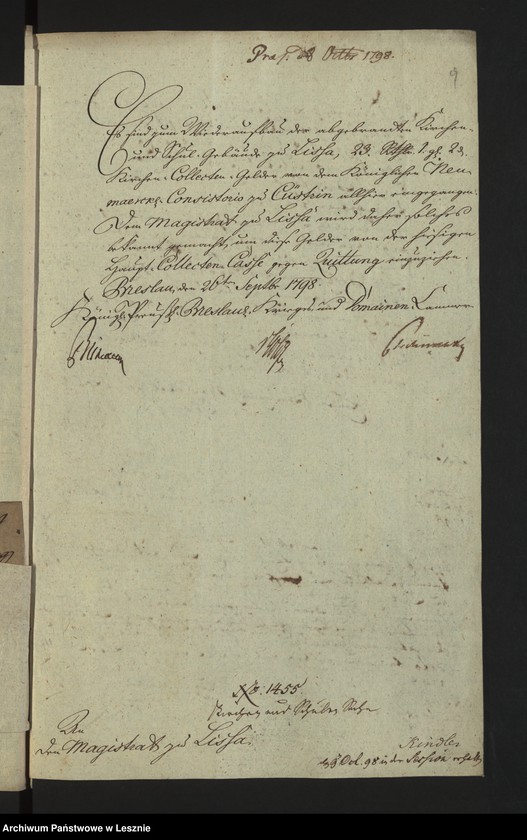 Präs. d 8 Octbr 1798.
9
Es sind zum Wiederaufbau der abgebrandten Kirchen-
und Schul-Gebäude zu Lissa, 23. Rthlr. 1. gl. 2 d.
Kirchen-Collecten-Gelder von dem Königlichen Neu-
maerck. Consistorio zu Cüstrin allhier eingegangen.
Dem Magistrat zu Lissa wird daher solches
bekannt gemacht, um diese Gelder von der hiesigen
Haupt-Collecten-Casse gegen Quittung einzuziehen.
Breslau, den 26ten Septbr 1798.
Königl. Preuß. Breslausche Krieges und Domainen Cammer
No. 1455.
Kirchen und Schulen Sache
An
den Magistrat zu Lissa.
Kindler
d 9 Oct. 98 in der Session erhalten
Archiwum Państwowe w Lesznie